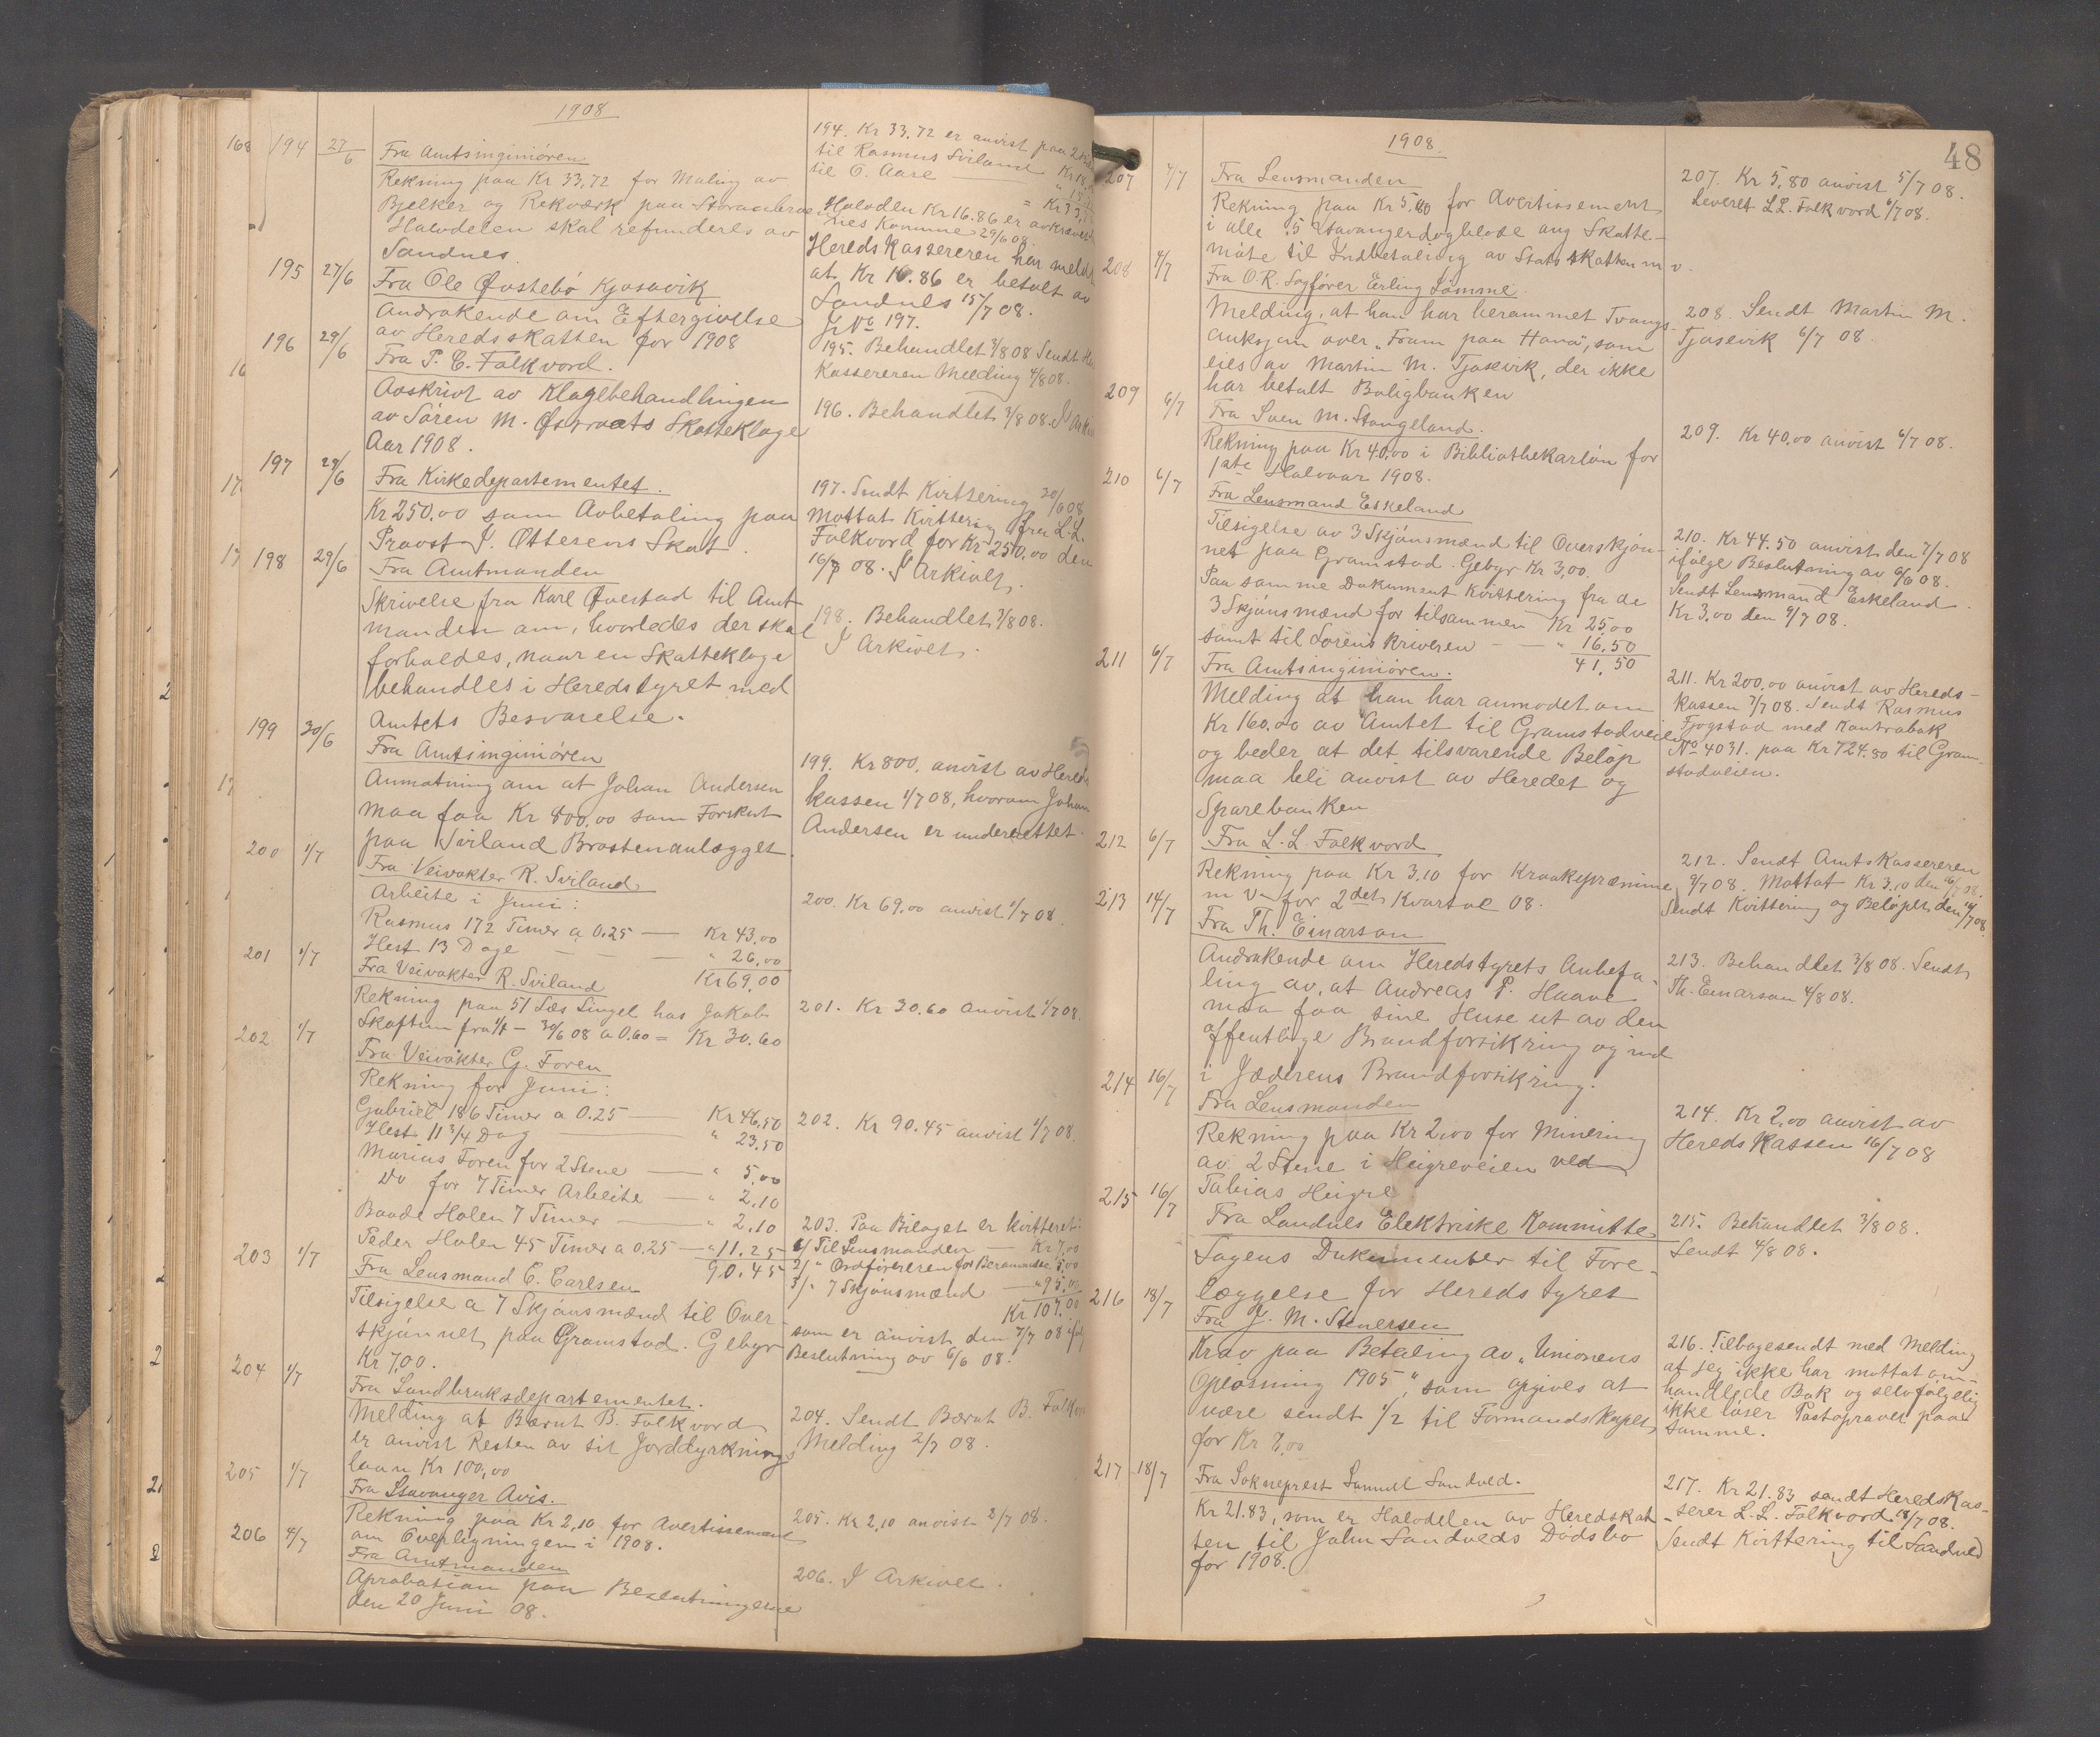 1908
194 27/6 Fra Amtsinginiören
Rekning paa Kr 33,72 for Maling av
Bjelker og Rekværk paa
Halvdelen skal refunderes av
Sandnes
194. Kr 33.72 er anvist paa
til Rasmus Sviland Kr 18.
til O. Aase
= Kr 33,
Halvdelen Kr 16.86 er avkrævet
nes Komune 29/6 08.
Heredskassereren har meldt
at Kr 16.86 er betalt av
Sandnes 15/7 08.
J No 197.
195 27/6 Fra Ole Østebö Kjosavik
Andrakende om Eftergivelse
av Heredsskatten for 1908
195. Behandlet 3/8 08 Sendt
Kassereren Melding 4/8 08.
196 29/6 Fra P. C. Falkvord.
Avskrivt av Klagebehandlingen
av Sören M. Østraats Skatteklage
Aar 1908.
196. Behandlet 3/8 08. I
197 29/6 Fra Kirkedepartementet.
Kr 250.00 som Avbetaling paa
Provst J. Ottesens Skat.
197. Sendt Kvittering 30/6 08
Mottat Kvittering fra L.L.
Falkvord for Kr 250,00 den
16/7 08. I Arkivet.
198 29/6 Fra Amtmanden
Skrivelse fra Karl Øvestad til Amt
manden om, hvorledes der skal
forholdes, naar en Skatteklage
behandles i Heredstyret med
Amtets Besvarelse.
198. Behandlet 3/8 08.
I Arkivet.
199 30/6 Fra Amtsinginiören
Anmotning om at Johan Andersen
maa faa Kr 800,00 som Forskut
paa Sviland Brostenanlægget
199. Kr 800, anvist av Hereds
kassen 1/7 08, hvorom Johan
Andersen er underrettet.
200 1/7 Fra Veivokter R. Sviland
Arbeite i Juni:
Rasmus 172 Timer a 0.25 — Kr 43,00
Hest 13 Dage — — — " 26,00
Kr 69,00
200. Kr 69.00 anvist 1/7 08
201 1/7 Fra Veivokter R. Sviland
Rekning paa 51 Læs Singel hos Jakob
Skaftun fra 1/1 – 30/6 08 a 0.60 = Kr 30.60
201. Kr 30.60 anvist 1/7 08.
202 1/7 Fra Veivokter G. Foren
Rekning for Juni:
Gabriel 186 Timer a 0.25 — Kr 46,50
Hest 11 3/4 Dag — " 23.50
Marius Foren for 2 Stene — " 5,00
Do for 7 Timer Arbeite — " 2.10
Baade Holen 7 Timer — " 2.10
Peder Holen 45 Timer a 0.25 — " 11.25
90.45
202. Kr 90.45 anvist 1/7 08.
203 1/7 Fra Lensmand E. Carlsen
Tilsigelse a 7 Skjönsmænd til Over
skjönnet paa Gramstad. Gebyr
Kr 7,00.
203. Paa Bilaget er kvitteret:
1/ Til Lensmanden — Kr 7,00
2/ " Ordföreren for Berammelse 5,00
3/ " 7 Skjönsmænd — " 95,00
Kr 107.00
som er anvist den 7/7 08
Beslutning av 6/6 08.
204 1/7 Fra Landbruksdepartementet.
Melding at Bærnt B. Falkvord
er anvist Resten av sit Jorddyrknings
laan Kr 100,00
204. Sendt Bærnt B.
Melding 2/7 08.
205 1/7 Fra Stavanger Avis.
Rekning paa Kr 2,10 for Avertissement
om Overligningen i 1908.
205. Kr 2,10 anvist 2/7 08.
206 4/7 Fra Amtmanden
Aprobation paa Beslutningerne
den 20 Juni 08.
206. I Arkivet.
1908. 48
207 4/7 Fra Lensmanden
Rekning paa Kr 5.80 for Avertissement
i alle 5 Stavangerdagblade ang Skatte-
möte til Indbetaling av Statsskatten m v.
207. Kr 5,80 anvist 5/7 08.
Leveret L.L. Falkvord 6/7 08.
208 4/7 Fra O.R. Sagförer Erling Lömme.
Melding, at han har berammet Tvangs-
auksjon over "Fram paa Hana", som
eies av Martin M. Tjosevik, der ikke
har betalt Boligbanken
208. Sendt Martin M.
Tjosevik 6/7 08.
209 6/7 Fra Sven M. Stangeland.
Rekning paa Kr 40,00 i Bibliothekarlön for
1ste Halvaar 1908.
209. Kr 40,00 anvist 6/7 08.
210 6/7 Fra Lensmand Eskeland
Tilsigelse av 3 Skjönsmænd til Overskjön-
net paa Gramstad. Gebyr Kr 3,00.
Paa samme Dokument Kvittering fra de
3 Skjönsmænd for tilsammen Kr 25,00
samt til Sorenskriveren — — " 16.50
41.50
210. Kr 44.50 anvist den 7/7 08
ifölge Beslutning av 6/6 08.
Sendt Lensmand Eskeland
Kr 3,00 den 9/7 08.
211 6/7 Fra Amtsinginiören.
Melding at han har anmodet om
Kr 160,00 av Amtet til Gramstadveien
og beder at det tilsvarende Belöp
maa bli anvist av Heredet og
Sparebanken
211. Kr 200,00 anvist av Hereds-
kassen 7/7 08. Sendt Rasmus
Fjogstad med Kontrabok
No 4031. paa Kr 724.80 til Gram-
stadveien.
212 6/7 Fra L. L. Falkvord
Rekning paa Kr 3.10 for Kraakepræmie
m v. for 2det Kvartal 08.
212. Sendt Amtskassereren
9/7 08. Mottat Kr 3.10 den 16/7 08.
Sendt Kvittering og Belöpet den 16/7 08
213 14/7 Fra Th. Einarson
Andrakende om Heredstyrets Anbefa-
ling av, at Andreas P. Haave
maa faa sine Huse ut av den
offentlige Brandforsikring og ind
i Jæderens Brandforsikring.
213. Behandlet 3/8 08. Sendt
Th. Einarson 4/8 08.
214 16/7 Fra Lensmanden
Rekning paa Kr 2,00 for Minering
av 2 Stene i Heigreveien ved
Tobias Heigre
214. Kr 2,00 anvist av
Heredskassen 16/7 08
215 16/7 Fra Sandnes Elektriske Kommitte
Sagens Dokumenter til Fore-
læggelse for Heredstyret
215. Behandlet 3/8 08.
Sendt 4/8 08.
216 18/7 Fra J. M. Stenersen
Krav paa Betaling av "Unionens
Oplösning 1905", som opgives at
være sendt 1/2 til Formandskapet
for Kr 7,00
216. Tilbagesendt med Melding
at jeg ikke har mottat om-
handlede Bok og selvfölgelig
ikke löser Postopkravet paa
samme.
217 18/7 Fra Sokneprest Samuel Sandved.
Kr 21.83, som er Halvdelen av Heredskat-
ten til John Sandveds Dödsbo
for 1908.
217. Kr 21.83 sendt Heredskas-
serer L. L. Falkvord 18/7 08.
Sendt Kvittering til Sandved